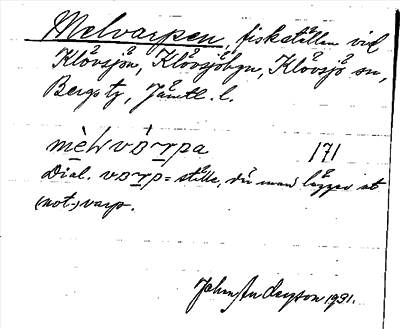 Melvarpen, fiskställen vid
Klövsjön, Klövsjöbyn, Klövsjö sn,
Bergs tg, Jämtl. l.
171
Dial. varp = ställe, där man lägger ut
(not-)varp.
John Anderson 1931.